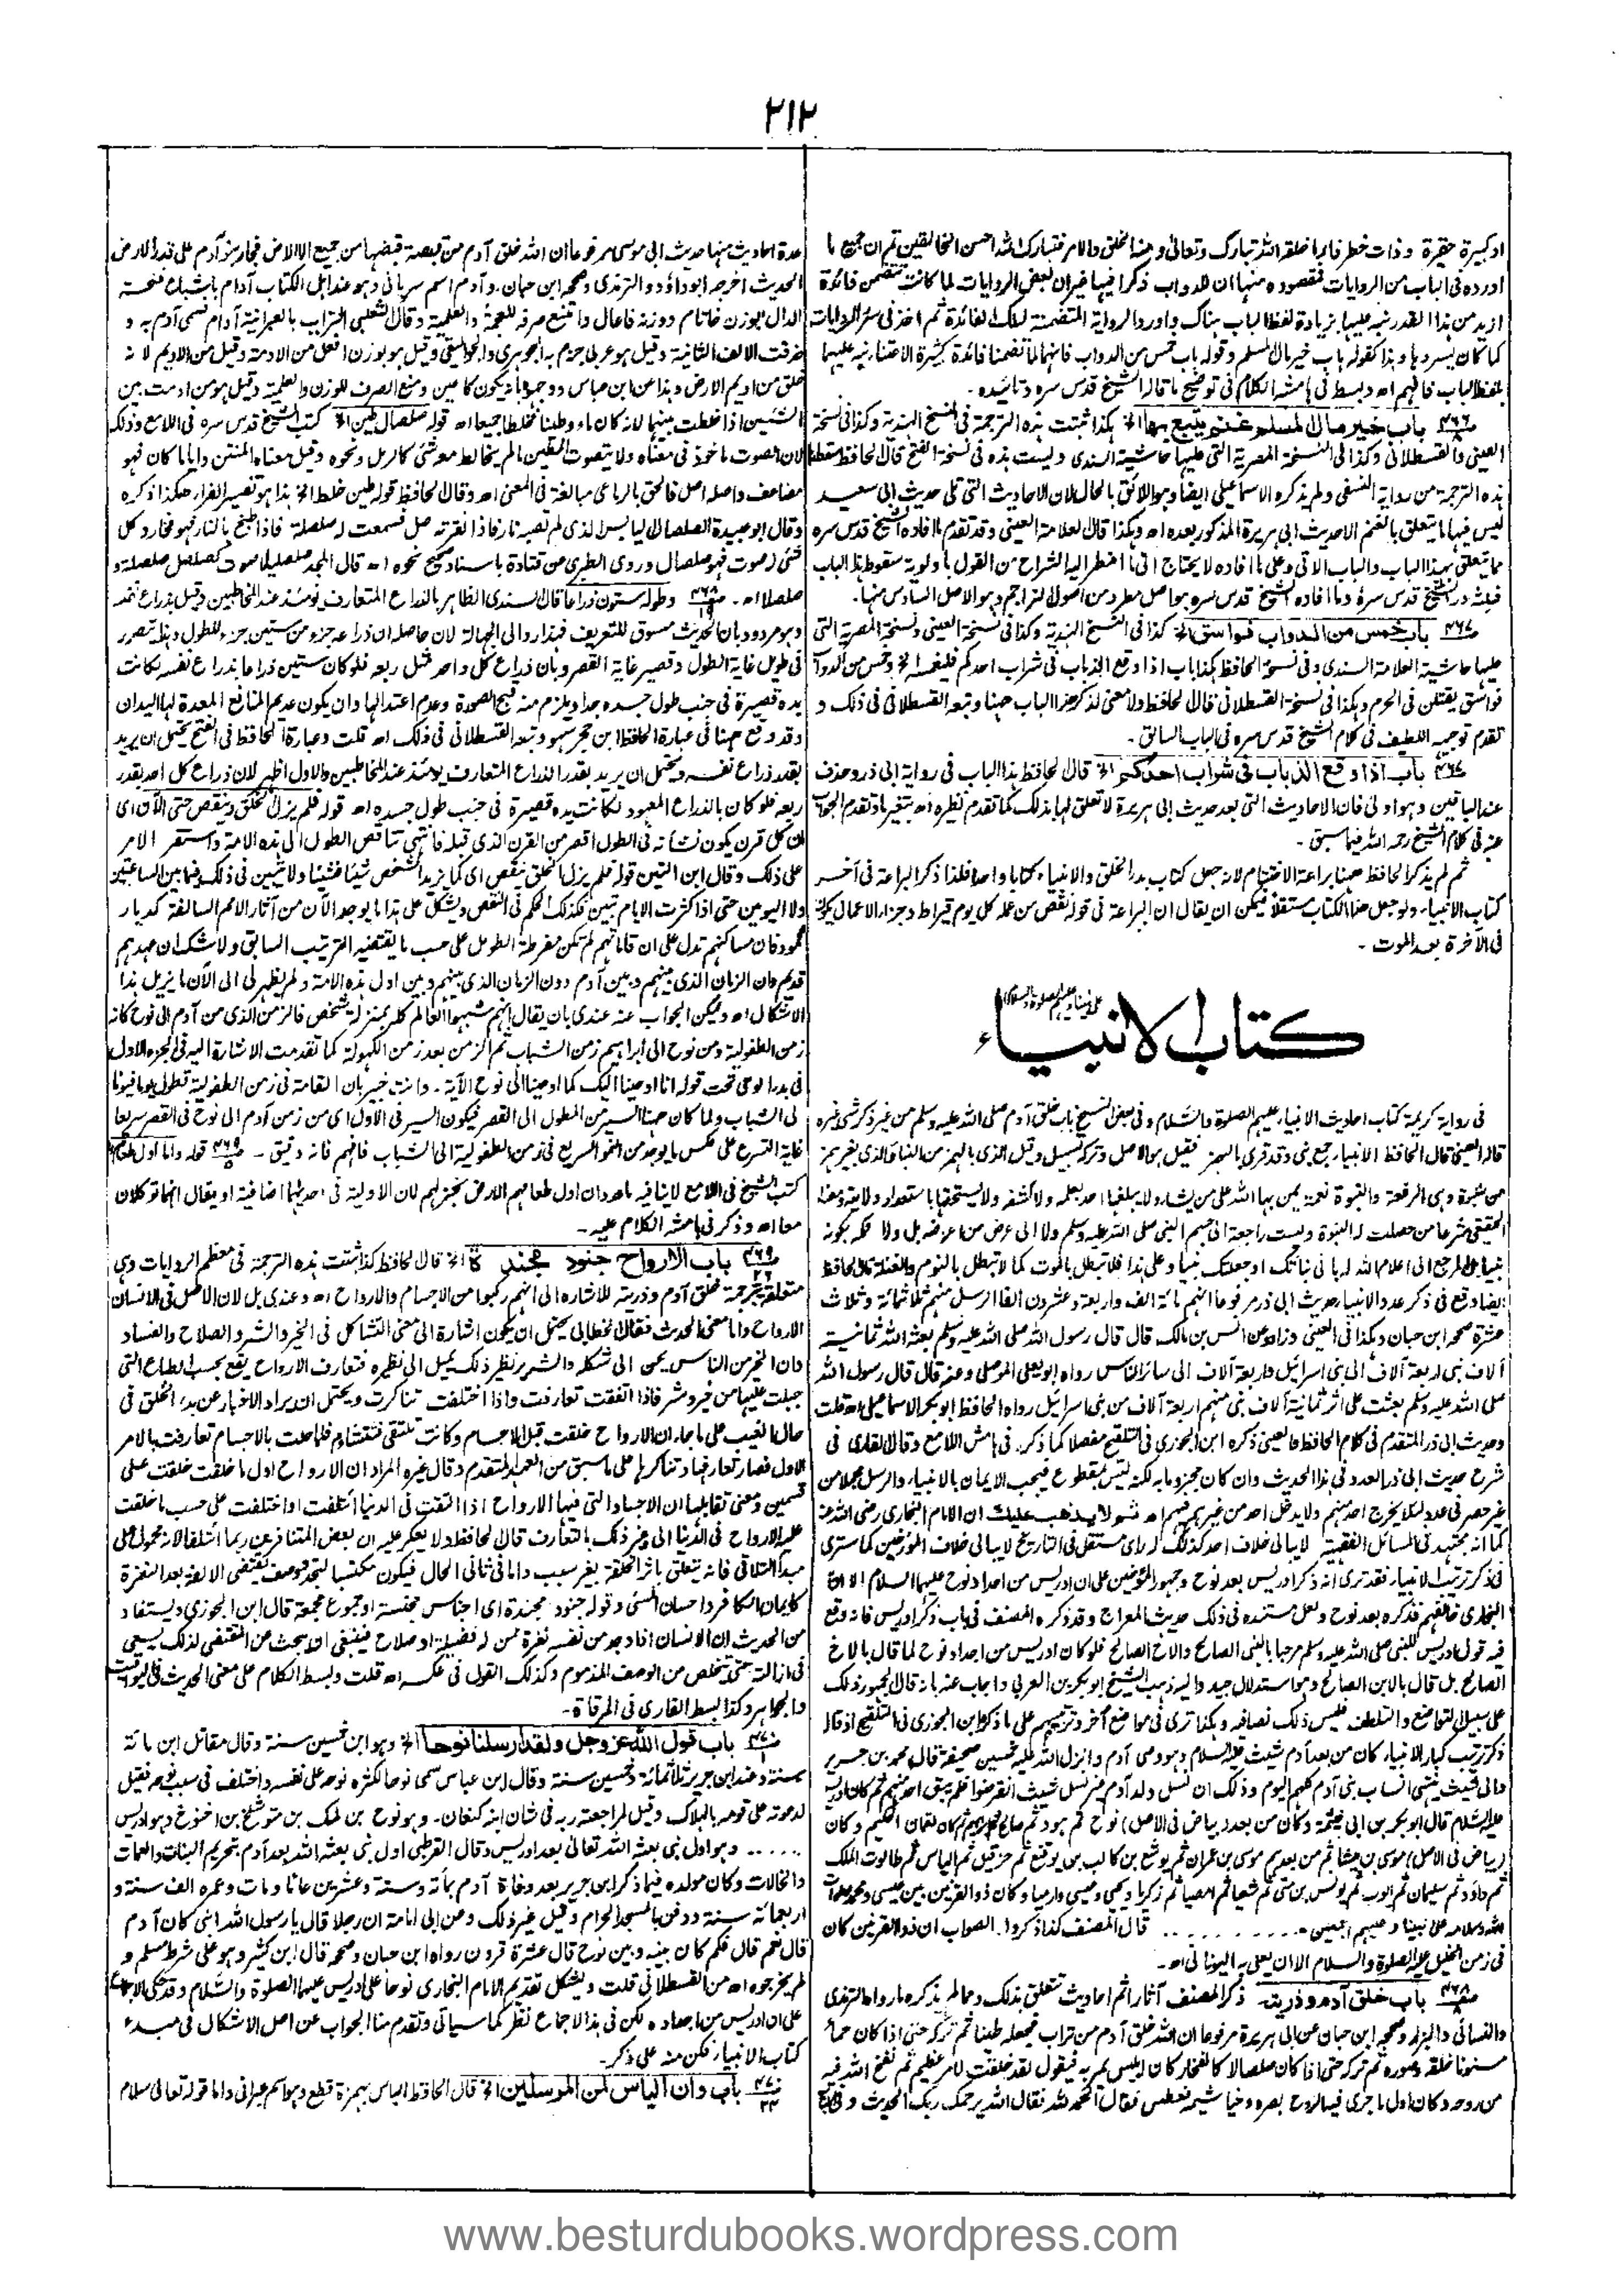 ٢١٢
او كبيرة حقيرة وذات خطر فانما خلقه الله تبارك وتعالى ومنه الخلق والامر فتبارك الله احسن الخالقين ثم ان جميع ما
اورده فى الباب من الروايات فمقصوده منها ان للدواب ذكرا فيها غير ان بعض الروايات لما كانت تتضمن فائدة
ازيد من هذا القدر نبه عليها بزيادة لفظ الباب هناك واورد الرواية المتضمنة لتلك الفائدة ثم اخذ فى سرد الروايات
كما كان يسردها وهذا كقوله باب خير مال المسلم وقوله باب خمس من الدواب فانهما لما تضمنا فائدة كثيرة الاعتناء نبه عليهما
بلفظ الباب فافهم اه وبسط فى هامشه الكلام فى توضيح ما قاله الشيخ قدس سره وتائيده۔
باب خير مال المسلم غنم يتبع بها الخ هكذا ثبتت هذه الترجمة فى النسخ الهندية وكذا فى نسخة
العينى والقسطلانى وكذا فى النسخة المصرية التى عليها حاشية السندى وليست هذه فى نسخة الفتح قال الحافظ سقطت
هذه الترجمة من رواية النسفى ولم يذكره الاسماعيلى ايضا وهو اللائق بالحال لان الاحاديث التى تلى حديث ابى سعيد
ليس فيها ما يتعلق بالغنم الا حديث ابى هريرة المذكور بعده اه وهكذا قال العلامة العينى وقد تقدم ما افاده الشيخ قدس سره
مما يتعلق بهذا الباب والباب الاتى وعلى ما افاده لا يحتاج الى ما اضطر اليه الشراح من القول باولوية سقوط هذا الباب
فلله در الشيخ قدس سره وما افاده الشيخ قدس سره هو اصل مطرد من اصول التراجم وهو الاصل السادس منها۔
باب خمس من الدواب فواسق الخ كذا فى النسخ الهندية وكذا فى نسخة العينى والنسخة المصرية التى
عليها حاشية العلامة السندى وفى نسخة الحافظ هكذا باب اذا وقع الذباب فى شراب احدكم فليغمسه الخ وخمس من الدواب
فواسق يقتلن فى الحرم وهكذا فى نسخة القسطلانى قال الحافظ ولا معنى لذكر هذا الباب ههنا وتبعه القسطلانى فى ذلك و
تقدم توجيهه اللطيف فى كلام الشيخ قدس سره فى الباب السابق۔
باب اذا وقع الذباب فى شراب احدكم الخ قال الحافظ هذا الباب فى رواية ابى ذر وحذف
عند الباقين وهو اولى فان الاحاديث التى بعد حديث ابى هريرة لا تعلق لها بذلك كما تقدم نظيره اه بتغير وتقدم الجواب
عنه فى كلام الشيخ رحمه الله فيما سبق۔
ثم لم يذكر الحافظ ههنا براعة الاختتام لانه جعل كتاب بدء الخلق والانبياء كتابا واحدا فلذا ذكر البراعة فى آخر
كتاب الانبياء ولو جعل هذا الكتاب مستقلا فيمكن ان يقال ان البراعة فى قوله نقص من عمله كل يوم قيراط وجزاء الاعمال يكون
فى الآخرة بعد الموت۔
كتاب الانبياء
على نبينا وعليهم الصلوة والسلام
فى رواية كريمة كتاب احاديث الانبياء عليهم الصلوة والسلام وفى بعض النسخ باب خلق آدم صلى الله عليه وسلم من غير ذكر شئ غيره
قاله العينى قال الحافظ الانبياء جمع نبى وقد قرئ بالهمز فقيل هو الاصل وتركه تسهيل وقيل الذى بالهمز من النبأ والذى بغير همز
من النبوة وهى الرفعة والنبوة نعمة يمن بها الله على من يشاء ولا يبلغها احد بعلمه ولا كشفه ولا يستحقها باستعداد ولايته ومعناها
الحقيقى شرعا من حصلت له النبوة وليست راجعة الى جسم النبى صلى الله عليه وسلم ولا الى عرض من اعراضه بل ولا علمه بكونه
نبيا بل المرجع الى اعلام الله له بانى نبأتك او جعلتك نبيا وعلى هذا فلا تبطل بالموت كما لا تبطل بالنوم والغفلة قال الحافظ
ايضا وقع فى ذكر عدد الانبياء حديث ابى ذر مرفوعا انهم مائة الف واربعة وعشرون الفا الرسل منهم ثلاثمائة وثلاث
عشرة صححه ابن حبان وكذا فى العينى وزاد وعن انس بن مالك قال قال رسول الله صلى الله عليه وسلم بعث الله ثمانية
آلاف نبى اربعة آلاف الى بنى اسرائيل واربعة آلاف الى سائر الناس رواه ابو يعلى الموصلى وعنه قال قال رسول الله
صلى الله عليه وسلم بعثت على اثر ثمانية آلاف نبى منهم اربعة آلاف من بنى اسرائيل رواه الحافظ ابو بكر الاسماعيلى اه قلت
وحديث ابى ذر المتقدم فى كلام الحافظ والعينى ذكره ابن الجوزى فى التلقيح مفصلا كما ذكر فى هامش اللامع وقال القارى فى
شرح حديث ابى ذر العدد فى هذا الحديث وان كان مجزوما به لكنه ليس بمقطوع فيجب الايمان بالانبياء والرسل مجملا من
غير حصر فى عدد لئلا يخرج احد منهم ولا يدخل احد من غيرهم فيهم اه ثم لا يذهب عليك ان الامام البخارى رضى الله عنه
كما انه مجتهد فى المسائل الفقهية لا يبالى خلاف احد كذلك له راى مستقل فى التاريخ لا يبالى خلاف المؤرخين كما سترى
فى ذكر ترتيب الانبياء فقد ترى انه ذكر ادريس بعد نوح وجمهور المؤرخين على ان ادريس من اجداد نوح عليهما السلام الا ان
البخارى خالفهم فذكره بعد نوح ولعل مستنده فى ذلك حديث المعراج وقد ذكره المصنف فى باب ذكر ادريس فانه وقع
فيه قول ادريس للنبى صلى الله عليه وسلم مرحبا بالنبى الصالح والاخ الصالح فلو كان ادريس من اجداد نوح لما قال بالاخ
الصالح بل قال بالابن الصالح وهو استدلال جيد واليه ذهب الشيخ ابو بكر بن العربى واجاب عنه بانه قال الجمهور ذلك
على سبيل التواضع والتلطف فليس ذلك نصا فيه وهكذا ترى فى مواضع آخر وترتيبهم على ما ذكره ابن الجوزى فى التلقيح اذ قال
ذكر ترتيب كبار الانبياء كان من بعد آدم شيث عليه السلام وهو وصى آدم وانزل الله عليه خمسين صحيفة قال محمد بن جرير
والى شيث ينتهى انساب بنى آدم كلهم اليوم وذلك ان نسل ولد آدم غير نسل شيث انقرضوا فلم يبق احد منهم ثم كان ادريس
عليه السلام قال ابو بكر بن ابى خيثمة وكان من بعده (بياض فى الاصل) نوح ثم هود ثم صالح ثم ابراهيم ثم كان لقمان الحكيم وكان
(بياض فى الاصل) موسى بن ميشا ثم من بعدهم موسى بن عمران ثم يوشع بن كالب بن يوقنع ثم حزقيل ثم الياس ثم طالوت الملك
ثم داؤد ثم سليمان ثم ايوب ثم يونس بن متى ثم شعيا ثم ثم زكريا ويحيى وعيسى وارميا وكان ذو القرنين بين عيسى ومحمد صلوات
الله وسلامه على نبينا وعليهم اجمعين .......... قال المصنف كذا ذكروا. الصواب ان ذو القرنين كان
فى زمن الخليل عليه الصلوة والسلام الا ان يعلى به اليونانى اه۔
باب خلق آدم وذريته ذكر المصنف آثارا ثم احاديث تتعلق بذلك ومما لم يذكره ما رواه الترمذى
والنسائى والبزار وصححه ابن حبان عن ابى هريرة مرفوعا ان الله خلق آدم من تراب فجعله طينا ثم تركه حتى اذا كان حمأ
مسنونا خلقه وصوره ثم تركه حتى اذا كان صلصالا كالفخار كان ابليس يمر به فيقول لقد خلقت لامر عظيم ثم نفخ الله فيه
من روحه وكان اول ما جرى فيه الروح بصره وخياشيمه فعطس فقال الحمد لله فقال الله يرحمك ربك الحديث وفى الباب
عدة احاديث منها حديث ابى موسى مرفوعا ان الله خلق آدم من قبضة قبضها من جميع الارض فجاء بنو آدم على قدر الارض
الحديث اخرجه ابو داؤد والترمذى وصححه ابن حبان. وآدم اسم سريانى وهو عند اهل الكتاب آدام باشباع فتحة
الدال بوزن خاتام ووزنه فاعال وامتنع صرفه للعجمة والعلمية وقال الثعلبى التراب بالعبرانية آدام فسمى آدم به و
حذفت الالف الثانية وقيل هو عربى جزم به الجوهرى والجواليقى وقيل هو بوزن افعل من الادمة وقيل من الاديم لانه
خلق من اديم الارض وهذا عن ابن عباس ووجهوه بانه يكون كاعين ومنع الصرف للوزن والعلمية وقيل هو من ادمت بين
الشيئين اذا خلطت بينهما لانه كان ماء وطينا فخلطا جميعا اه قوله صلصال طين الخ كتب الشيخ قدس سره فى اللامع وذلك
لان الصوت ماخوذ فى معناه ولا يتصوت الطين ما لم يخالطه شئ كالرمل ونحوه وقيل معناه المنتن وايا ما كان فهو
مضاعف واصله اصل فالحق بالرباعى مبالغة فى المعنى اه وقال الحافظ قوله طين خلط الخ هذا هو تفسير الفراء هكذا ذكره
وقال ابو عبيدة الصلصال اليابس الذى لم تصبه نار فاذا نقرته صل فسمعت له صلصلة فاذا طبخ بالنار فهو فخار وكل
شئ له صوت فهو صلصال وروى الطبرى عن قتادة باسناد صحيح نحوه اه قال المجد صلصل صوت كصلصل صلصلة و
صلصالا اه۔ وطوله ستون ذراعا قال السندى الظاهر بالذراع المتعارف يومئذ عند المخاطبين وقيل بذراع نفسه
وهو مردود بان الحديث مسوق للتعريف فهذا رد الى الجهالة لان حاصله ان ذراعه جزء من ستين جزء للطول وهذا يتصور
فى طويل غاية الطول وقصير غاية القصر وبان ذراع كل واحد مثل ربعه فلو كان ستين ذراعا بذراع نفسه لكانت
يده قصيرة فى جنب طول جسده جدا ويلزم منه قبح الصورة وعدم اعتدالها وان يكون عديم المنافع المعدة لها اليدان
وقد وقع ههنا فى عبارة الحافظ ابن حجر سهو وتبعه القسطلانى فى ذلك اه قلت وعبارة الحافظ فى الفتح يحتمل ان يريد
بقدر ذراع نفسه ويحتمل ان يريد بقدر الذراع المتعارف يومئذ عند المخاطبين والاول اظهر لان ذراع كل احد بقدر
ربعه فلو كان بالذراع المعهود لكانت يده قصيرة فى جنب طول جسده اه قوله فلم يزل الخلق ينقص حتى الآن اى
ان كل قرن يكون نشأته فى الطول اقصر من القرن الذى قبله فانتهى تناقص الطول الى هذه الامة واستقر الامر
على ذلك وقال ابن التين قوله فلم يزل الخلق ينقص اى كما يزيد الشخص شيئا فشيئا ولا يتبين فى ذلك فيما بين الساعتين
ولا اليومين حتى اذا كثرت الايام تبين فكذلك الحكم فى النقص ويشكل على هذا ما يوجد الآن من آثار الامم السالفة كديار
ثمود فان مساكنهم تدل على ان قاماتهم لم تكن مفرطة الطول على حسب ما يقتضيه الترتيب السابق ولا شك ان عهدهم
قديم وان الزمان الذى بينهم وبين آدم دون الزمان الذى بينهم وبين اول هذه الامة ولم يظهر لى الى الآن ما يزيل هذا
الاشكال اه ويمكن الجواب عنه عندى بان يقال انهم شبهوا العالم كله بمنزلة شخص فالزمن الذى من آدم الى نوح كانه
زمن الطفولية ومن نوح الى ابراهيم زمن الشباب ثم الزمن بعد زمن الكهولة كما تقدمت الاشارة اليه فى الجزء الاول
فى بدء الوحى تحت قوله انا اوحينا اليك كما اوحينا الى نوح الآية. وانت خبير بان القامة فى زمن الطفولية تطول يوما فيوما
الى الشباب ولما كان ههنا السير من الطول الى القصر فيكون السير فى الاول اى من زمن آدم الى نوح فى القصر سريعا
غاية التسرع على عكس ما يوجد من النمو السريع فى زمن الطفولية الى الشباب فافهم فانه دقيق۔ قوله واما اول طعام
كتب الشيخ فى اللامع لا ينافيه ما ورد ان اول طعامهم الارض بخبزهم لان الاولية فى احدهما اضافية او يقال انهما توكلان
معا اه وذكر فى هامشه الكلام عليه۔
باب الارواح جنود مجندة الخ قال الحافظ كذا ثبتت هذه الترجمة فى معظم الروايات وهى
متعلقة بترجمة خلق آدم وذريته للاشارة الى انهم ركبوا من الاجسام والارواح اه وعندى بل لان الاصل فى الانسان
الارواح واما معنى الحديث فقال الخطابى يحتمل ان يكون اشارة الى معنى التشاكل فى الخير والشر والصلاح والفساد
وان الخير من الناس يحن الى شكله والشرير نظير ذلك يميل الى نظيره فتعارف الارواح يقع بحسب الطباع التى
جبلت عليها من خير وشر فاذا اتفقت تعارفت واذا اختلفت تناكرت ويحتمل ان يراد الاخبار عن بدء الخلق فى
حال الغيب على ما جاء ان الارواح خلقت قبل الاجسام وكانت تلتقى فتتشاءم فلما حلت بالاجسام تعارفت بالامر
الاول فصار تعارفها وتناكرها على ما سبق من العهد المتقدم وقال غيره المراد ان الارواح اول ما خلقت خلقت على
قسمين ومعنى تقابلها ان الاجساد التى فيها الارواح اذا التقت فى الدنيا ائتلفت او اختلفت على حسب ما خلقت
عليه الارواح فى الدنيا الى غير ذلك بالتعارف قال الحافظ ولا يعكر عليه ان بعض المتنافرين ربما ائتلفا لانه محمول على
مبدأ التلاقى فانه يتعلق باثر الخلقة بغير سبب واما فى ثانى الحال فيكون مكتسبا لتجدد وصف يقتضى الالفة بعد النفرة
كايمان الكافر واحسان المسئ وقوله جنود مجندة اى اجناس مجنسة او جموع مجمعة قال ابن الجوزى ويستفاد
من الحديث ان الانسان اذا وجد من نفسه نفرة ممن له فضيلة او صلاح فينبغى ان يبحث عن المقتضى لذلك ليسعى
فى ازالته حتى يتخلص من الوصف المذموم وكذلك القول فى عكسه اه قلت وبسط الكلام على معنى الحديث فى اليواقيت
والجواهر وكذا بسط القارى فى المرقاة۔
باب قول الله عز وجل ولقد ارسلنا نوحا الخ وهو ابن خمسين سنة وقال مقاتل ابن مائة
سنة وعند ابن جرير ثلاثمائة وخمسين سنة وقال ابن عباس سمى نوحا لكثرة نوحه على نفسه واختلف فى سبب نوحه فقيل
لدعوته على قومه بالهلاك وقيل لمراجعته ربه فى شان ابنه كنعان۔ وهو نوح بن لمك بن متوشلخ بن اخنوخ وهو ادريس
..... وهو اول نبى بعثه الله تعالى بعد ادريس وقال القرطبى اول نبى بعثه الله بعد آدم بتحريم البنات والعمات
والخالات وكان مولده فيما ذكر ابن جرير بعد وفاة آدم بمأة وستة وعشرين عاما ومات وعمره الف سنة و
اربعمائة سنة ودفن بالمسجد الحرام وقيل غير ذلك وعن ابى امامة ان رجلا قال يا رسول الله انبى كان آدم
قال نعم قال فكم كان بينه وبين نوح قال عشرة قرون رواه ابن حبان وصححه قال ابن كثير وهو على شرط مسلم و
لم يخرجوه اه من القسطلانى قلت ويشكل تقديم الامام البخارى نوحا على ادريس عليهما الصلوة والسلام وقد حكى الاجماع
على ان ادريس من اجداده لكن فى هذا الاجماع نظر كما سياتى وتقدم منا الجواب عن اصل الاشكال فى مبدء
كتاب الانبياء فكن منه على ذكر۔
باب وان الياس لمن المرسلين الخ قال الحافظ الياس بهمزة قطع وهو اسم عبرانى واما قوله تعالى سلام
www.besturdubooks.wordpress.com